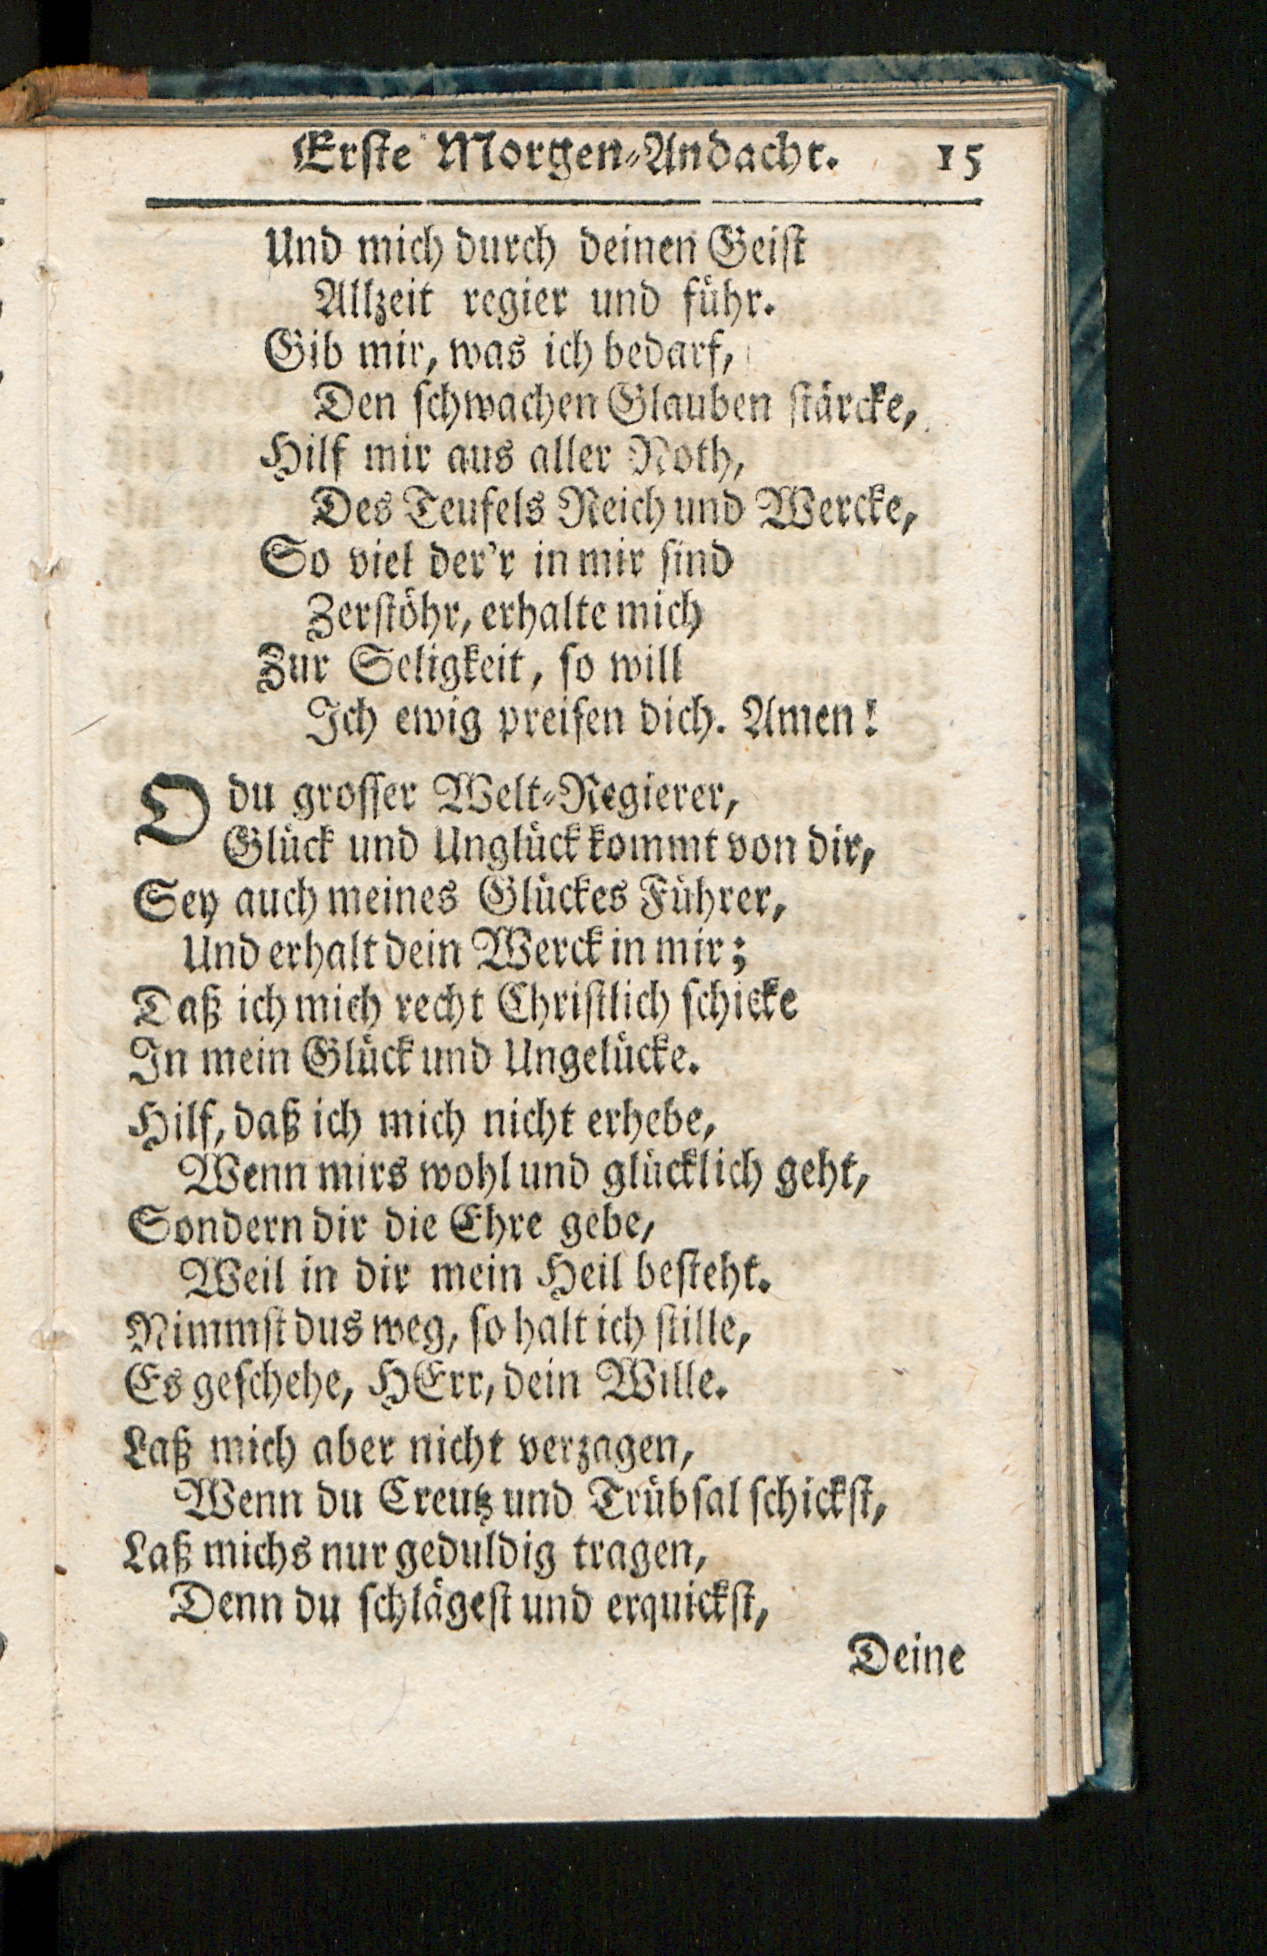 Erste Morgen-Andacht. 15
Und mich durch deinen Geist
Allzeit regier und führ.
Gib mir, was ich bedarf,
Den schwachen Glauben stärcke,
Hilf mir aus aller Noth,
Des Teufels Reich und Wercke,
So viel der'r in mir sind
Zerstöhr, erhalte mich
Zur Seligkeit, so will
Ich ewig preisen dich. Amen!
O du grosser Welt-Regierer,
Glück und Unglück kommt von dir,
Sey auch meines Glückes Führer,
Und erhalt dein Werck in mir;
Daß ich mich recht Christlich schicke
In mein Glück und Ungelücke.
Hilf, daß ich mich nicht erhebe,
Wenn mirs wohl und glücklich geht,
Sondern dir die Ehre gebe,
Weil in dir mein Heil besteht.
Nimmst dus weg, so halt ich stille,
Es geschehe, HErr, dein Wille.
Laß mich aber nicht verzagen,
Wenn du Creutz und Trübsal schickst,
Laß michs nur geduldig tragen,
Denn du schlägest und erquickst,
Deine